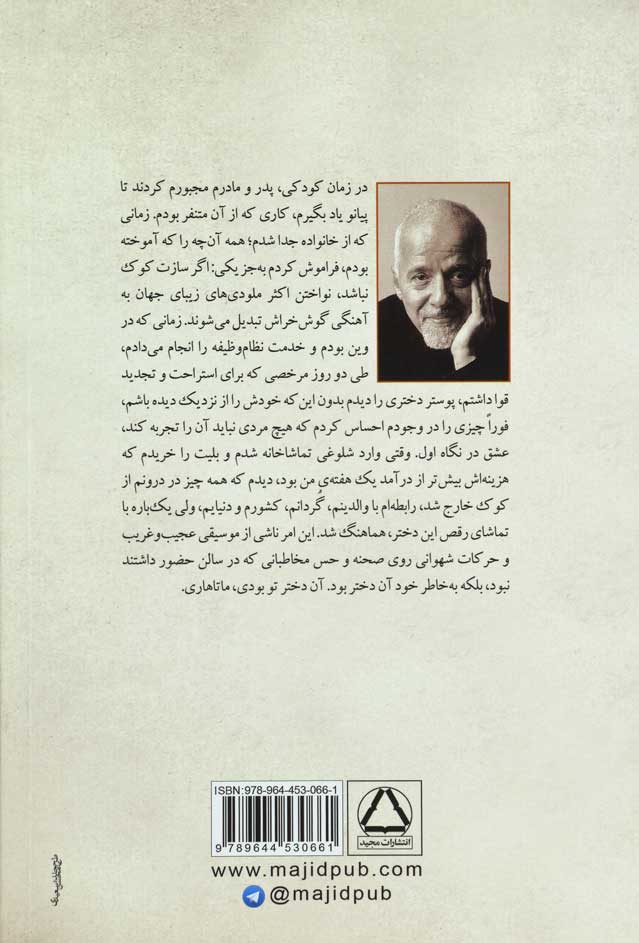 در زمان کودکی، پدر و مادرم مجبورم کردند تا
پیانو یاد بگیرم، کاری که از آن متنفر بودم. زمانی
که از خانواده جدا شدم؛ همه آن‌چه را که آموخته
بودم، فراموش کردم به‌جز یکی: اگر سازت کوک
نباشد، نواختن اکثر ملودی‌های زیبای جهان به
آهنگی گوش‌خراش تبدیل می‌شوند. زمانی که در
وین بودم و خدمت نظام‌وظیفه را انجام می‌دادم،
طی دو روز مرخصی که برای استراحت و تجدید
قوا داشتم، پوستر دختری را دیدم بدون این که خودش را از نزدیک دیده باشم،
فوراً چیزی را در وجودم احساس کردم که هیچ مردی نباید آن را تجربه کند،
عشق در نگاه اول. وقتی وارد شلوغی تماشاخانه شدم و بلیت را خریدم که
هزینه‌اش بیش‌تر از درآمد یک هفته‌ی من بود، دیدم که همه چیز در درونم از
کوک خارج شد، رابطه‌ام با والدینم، گُردانم، کشورم و دنیایم، ولی یک‌باره با
تماشای رقص این دختر، هماهنگ شد. این امر ناشی از موسیقی عجیب‌وغریب
و حرکات شهوانی روی صحنه و حس مخاطبانی که در سالن حضور داشتند
نبود، بلکه به‌خاطر خود آن دختر بود. آن دختر تو بودی، ماتاهاری.
ISBN: 978-964-453-066-1
9 789644 530661
انتشارات مجید
www.majidpub.com
@majidpub